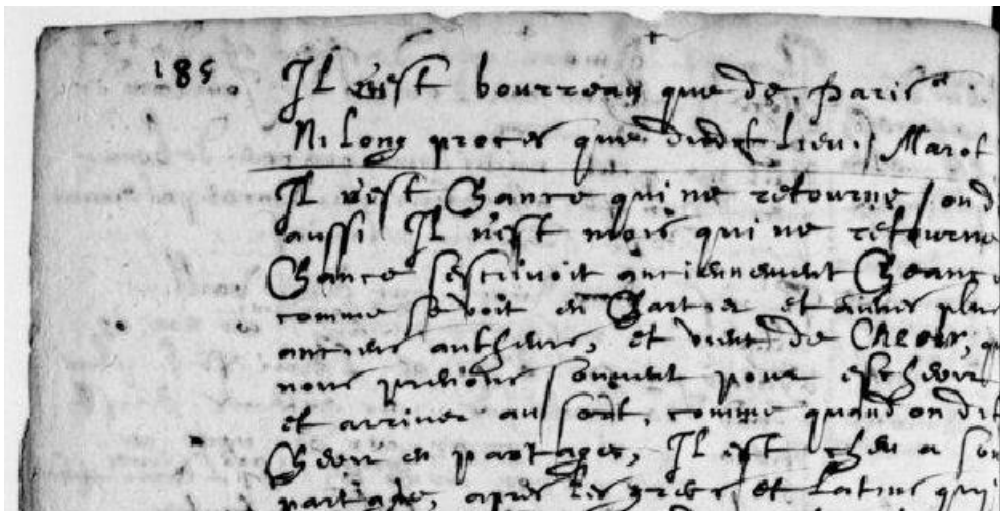 185 Il n'est bourreau que de Paris
Ni long proces que dudit lieu / Marot
Il n'est Chance qui ne retourne / on d
aussi Il n'est mois qui ne retourne
Chance s'escrivoit anciennement Cheance
comme se voit en Chartier et autres plus
anciens autheurs, et vient de Cheoir, qu
nous prenons souvent pour escheoir
et arriver au sort, comme quand on dit
Cheoir en partages, Il est cheu a son
partage, apres les grecs et latins qui